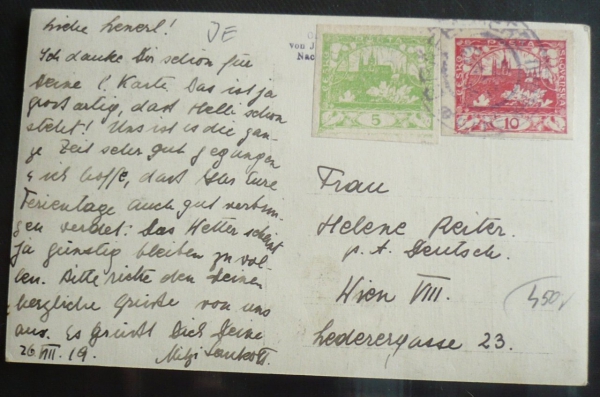 Liebe Lenerl!
Ich danke Dir schön für
Deine l. Karte Das ist ja
großartig, dass Helli schon
steht! Uns ist es die gan-
ze Zeit sehr gut gegangen
u ich hoffe, dass Ihr Eure
Ferientage auch gut verbrin-
gen werdet. Das Wetter scheint
ja günstig bleiben zu wol-
len. Bitte richte den Deinen
herzliche Grüße von uns
aus. Es grüßt Dich Deine
26 VIII. 19. Mitzi
JE
von J
Nac
ČESKO
SLOVENSKÁ
5
10
Frau
Helene Reiter
p. A. Deutsch.
Wien VIII.
Lederergasse 23.
450,-